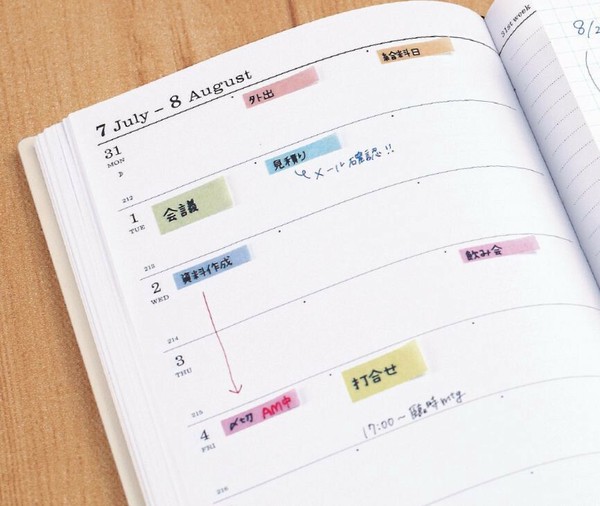 7 July – 8 August
31st week
8/2
31
MON
外出
給料日
見積り
メール確認!!
212
1
TUE
会議
213
2
WED
資料作成
飲み会
214
3
THU
215
4
FRI
〆切 AM中
打合せ
17:00〜臨時mtg
216